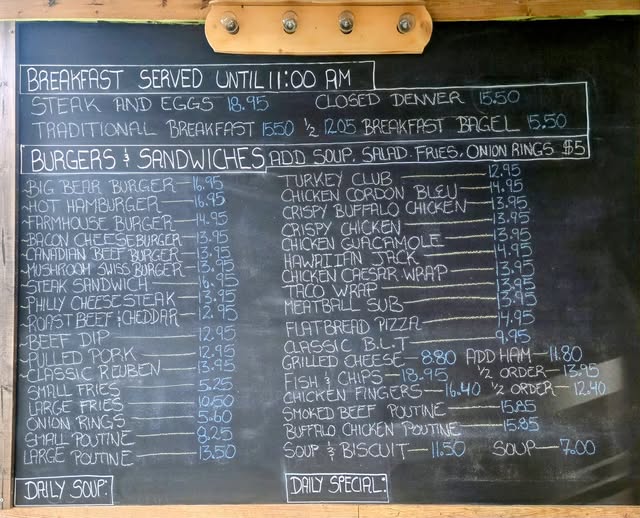 BREAKFAST SERVED UNTIL 11:00 AM
STEAK AND EGGS 18.95 CLOSED DENVER 15.50
TRADITIONAL BREAKFAST 15.50 ½ 12.05 BREAKFAST BAGEL 15.50
BURGERS & SANDWICHES ADD SOUP, SALAD, FRIES, ONION RINGS $5
BIG BEAR BURGER 16.95
HOT HAMBURGER 16.95
FARMHOUSE BURGER 14.95
BACON CHEESEBURGER 13.95
CANADIAN BEEF BURGER 13.95
MUSHROOM SWISS BURGER 13.95
STEAK SANDWICH 16.95
PHILLY CHEESE STEAK 13.95
ROAST BEEF & CHEDDAR 12.95
BEEF DIP 12.95
PULLED PORK 12.95
CLASSIC REUBEN 13.95
SMALL FRIES 5.25
LARGE FRIES 10.50
ONION RINGS 5.60
SMALL POUTINE 8.25
LARGE POUTINE 13.50
DAILY SOUP:
TURKEY CLUB 12.95
CHICKEN CORDON BLEU 14.95
CRISPY BUFFALO CHICKEN 13.95
CRISPY CHICKEN 13.95
CHICKEN GUACAMOLE 13.95
HAWAIIAN JACK 14.95
CHICKEN CAESAR WRAP 13.95
TACO WRAP 13.95
MEATBALL SUB 13.95
FLATBREAD PIZZA 14.95
CLASSIC B.L.T 9.95
GRILLED CHEESE 8.80 ADD HAM 11.80
FISH & CHIPS 18.95 ½ ORDER 13.95
CHICKEN FINGERS 16.40 ½ ORDER 12.40
SMOKED BEEF POUTINE 15.85
BUFFALO CHICKEN POUTINE 15.85
SOUP & BISCUIT 11.50 SOUP 7.00
DAILY SPECIAL: